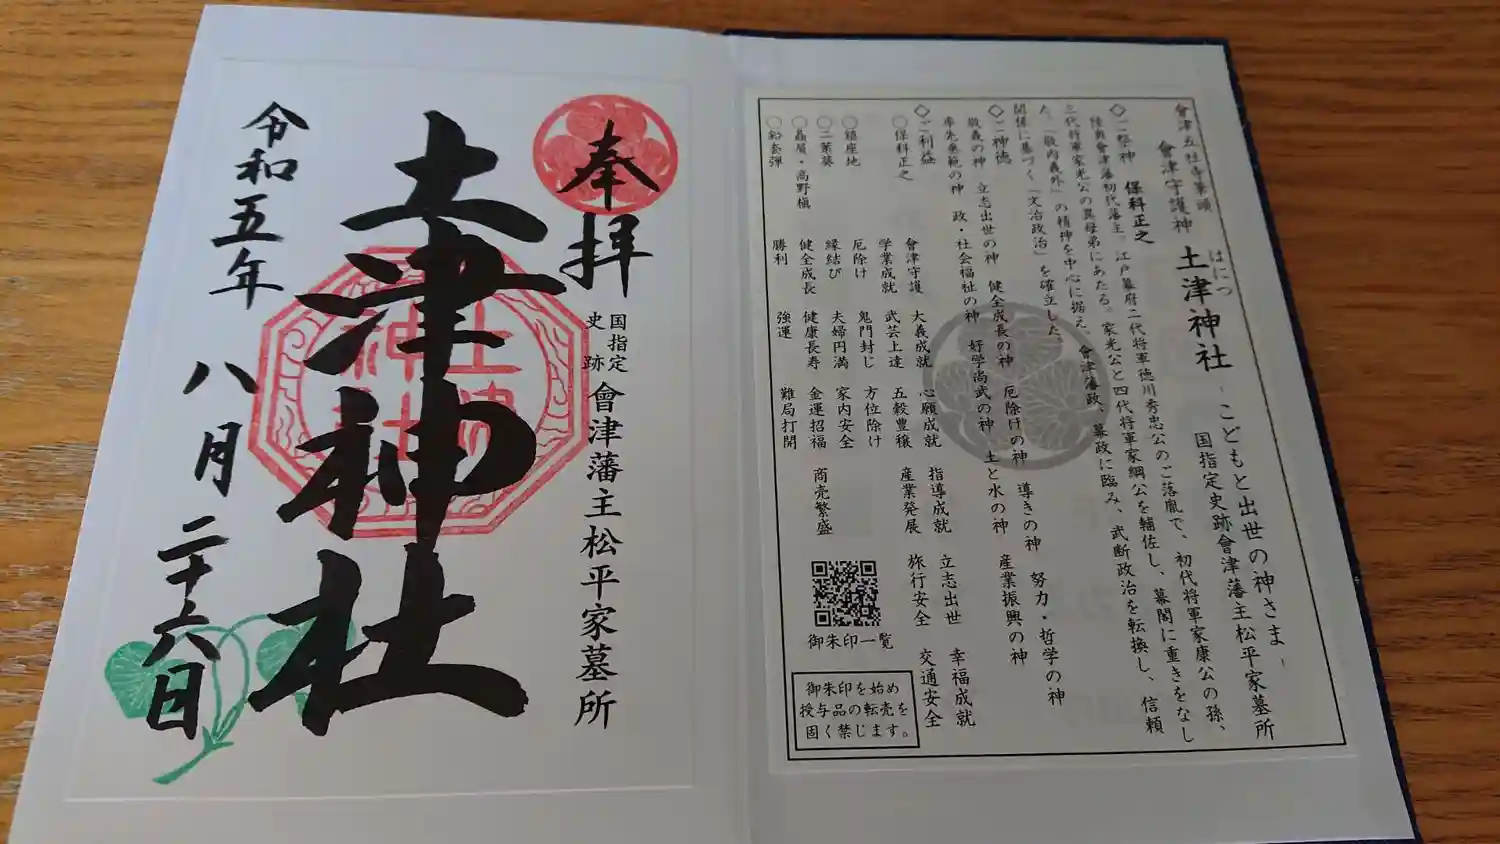 奉拝
国指定
史跡
會津藩主松平家墓所
土津神社
土津
神社
令和五年
八月二十六日
會津五社寺筆頭
會津守護神
はにつ
土津神社
-こどもと出世の神さま-
国指定史跡會津藩主松平家墓所
◇ご祭神 保科正之
陸奥會津藩初代藩主。江戸幕府二代将軍徳川秀忠公のご落胤で、初代将軍家康公の孫、
三代将軍家光公の異母弟にあたる。家光公と四代将軍家綱公を輔佐し、幕閣に重きをなし
た。「敬内義外」の精神を中心に据え、會津藩政、幕政に臨み、武断政治を転換し、信頼
関係に基づく「文治政治」を確立した。
◇ご神徳
敬義の神 立志出世の神 健全成長の神 厄除けの神 導きの神 努力・哲学の神
率先垂範の神 政・社会福祉の神 好学尚武の神 土と水の神 産業振興の神
◇ご利益
〇保科正之 會津守護 大義成就 心願成就 指導成就 立志出世 幸福成就
学業成就 武芸上達 五穀豊穣 産業発展 旅行安全 交通安全
〇鎮座地 厄除け 鬼門封じ 方位除け
〇二葉葵 縁結び 夫婦円満 家内安全
〇贔屓・高野槇 健全成長 健康長寿 金運招福 商売繁盛
〇鉛套弾 勝利 強運 難局打開
御朱印一覧
御朱印を始め
授与品の転売を
固く禁じます。